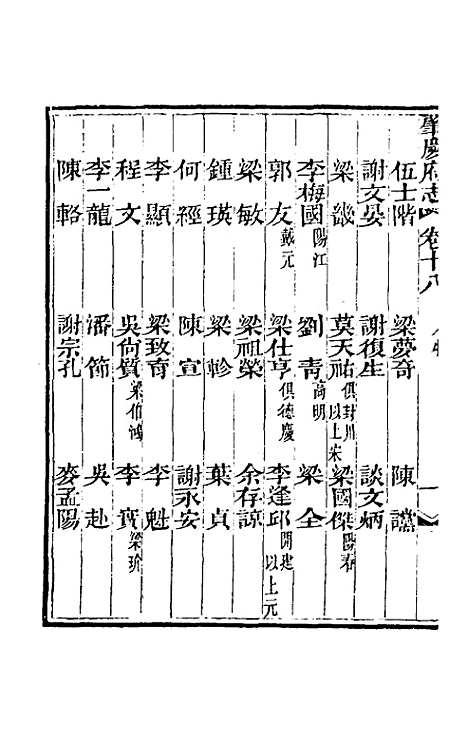 肇慶府志 卷十八 人物 一
伍士階 梁夢奇 陳讜
謝文晏 謝復生 談文炳
梁畿 莫天祐 俱封川以上宋 梁國傑 陽春
李梅國 陽江 劉靑 高明 梁全
郭友 戴元 梁仕亨 俱德慶 李逢邱 開建以上元
梁敏 梁祖榮 余存諒
鍾瑛 梁軫 葉貞
何經 陳宣 謝永安
李顯 梁致育 李魁
程文 吳尙質 梁伯鴻 李賓 梁玠
李一龍 潘節 吳赴
陳輅 謝宗孔 麥孟陽